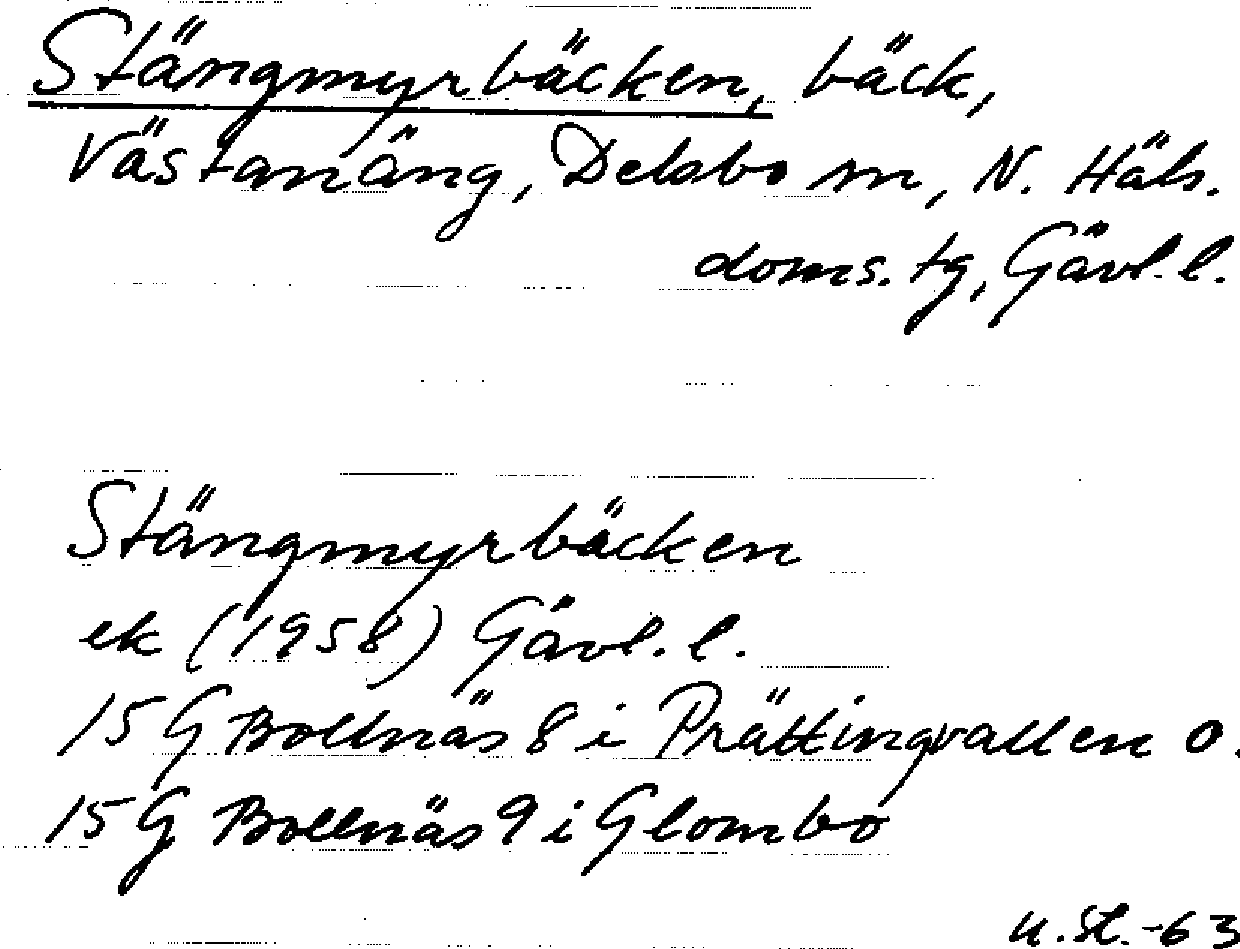 Stängmyrbäcken, bäck,
Västanäng, Delsbo sn, N. Häls.
doms. tg, Gävl. l.
Stängmyrbäcken
ek (1958) Gävl. l.
15 G Bollnäs 8 i Prättingvallen o.
15 G Bollnäs 9 i Glombo
U. St. -63